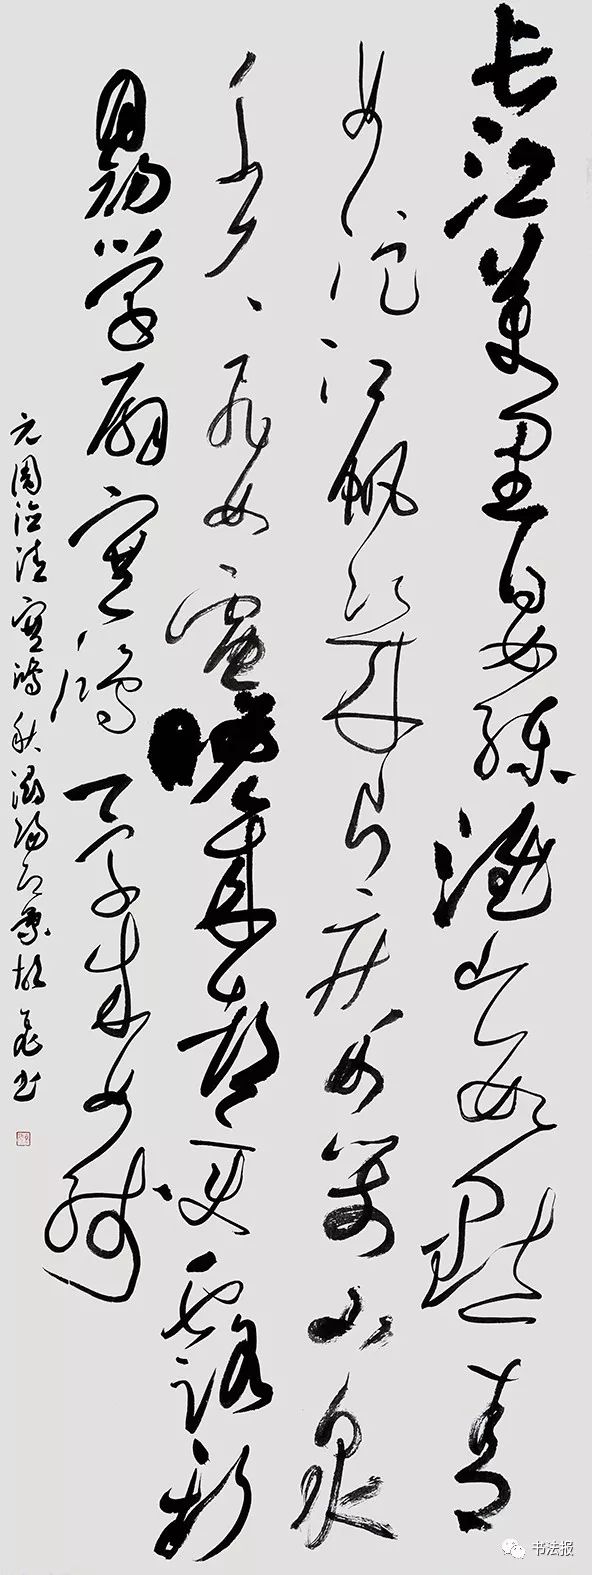 长江万里白如练淮山数点青
如淀江帆几片疾如箭山泉
千尺飞如電晚来都变露新
月初学扇塞鸿一字来如线
元周德清塞鸿秋浔阳即景 书
书法报